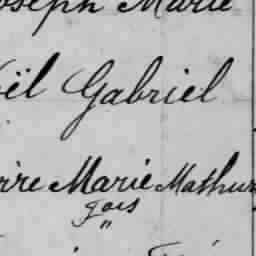 Joseph Marie
oël Gabriel
rre Marie Mathur
gois
"